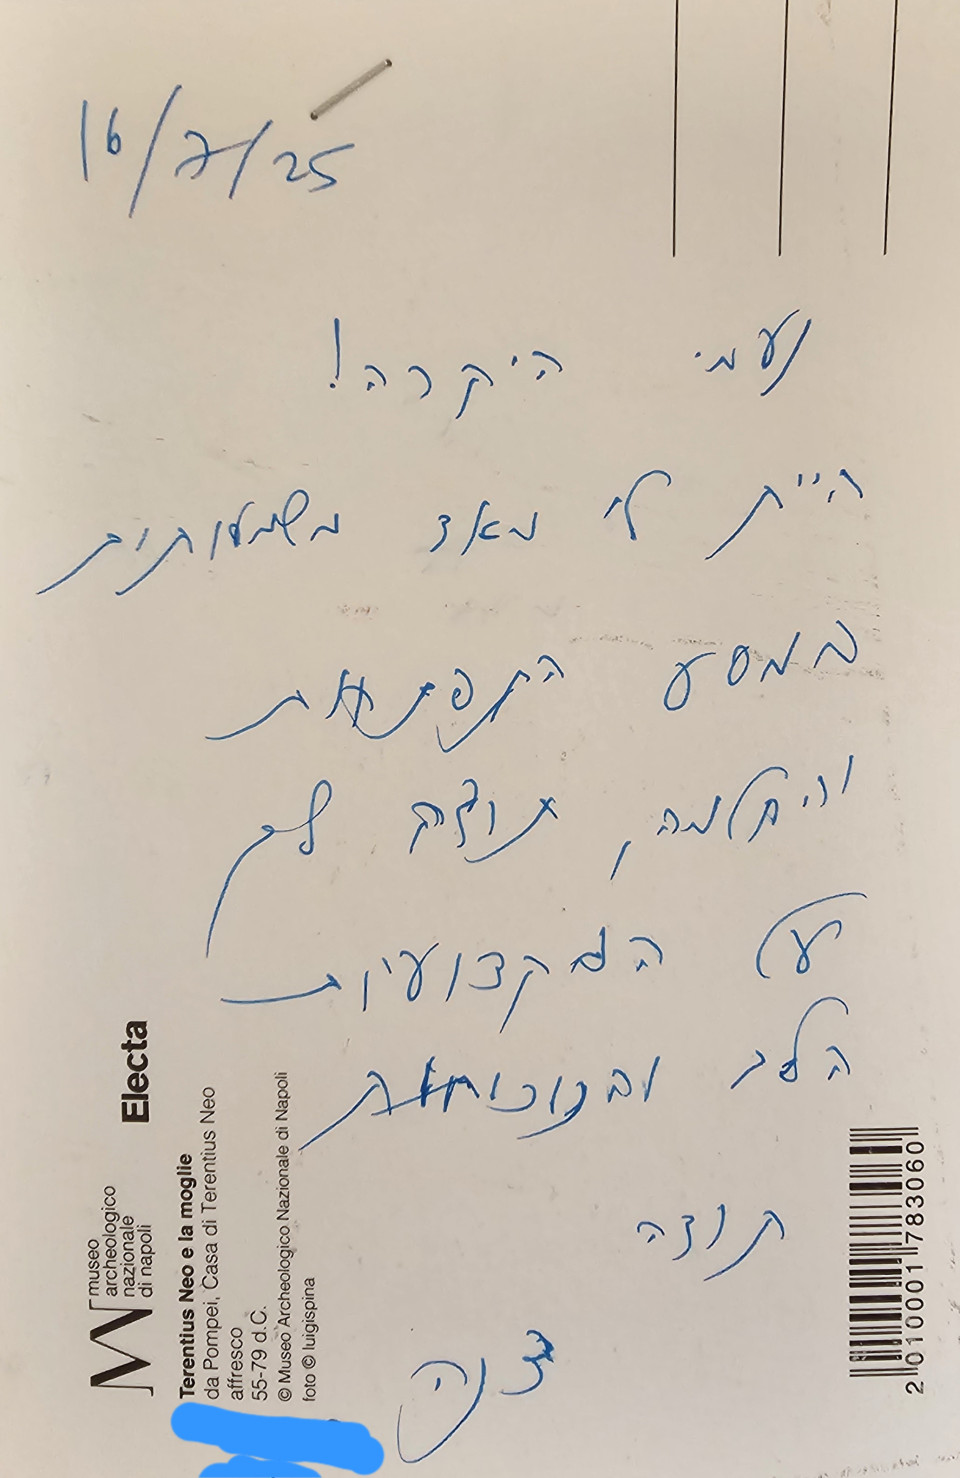 16/7/25
נעמי היקרה!
היית לי מאד משמעותית
במסע התפתאות
והחלמה, תודה לך
על המקצועיות
הלב ובנוכחאת
תודה
דנה
Electa
museo
archeologico
nazionale
di napoli
Terentius Neo e la moglie
da Pompei, Casa di Terentius Neo
affresco
55-79 d.C.
© Museo Archeologico Nazionale di Napoli
foto © luigispina
2 010001 783060